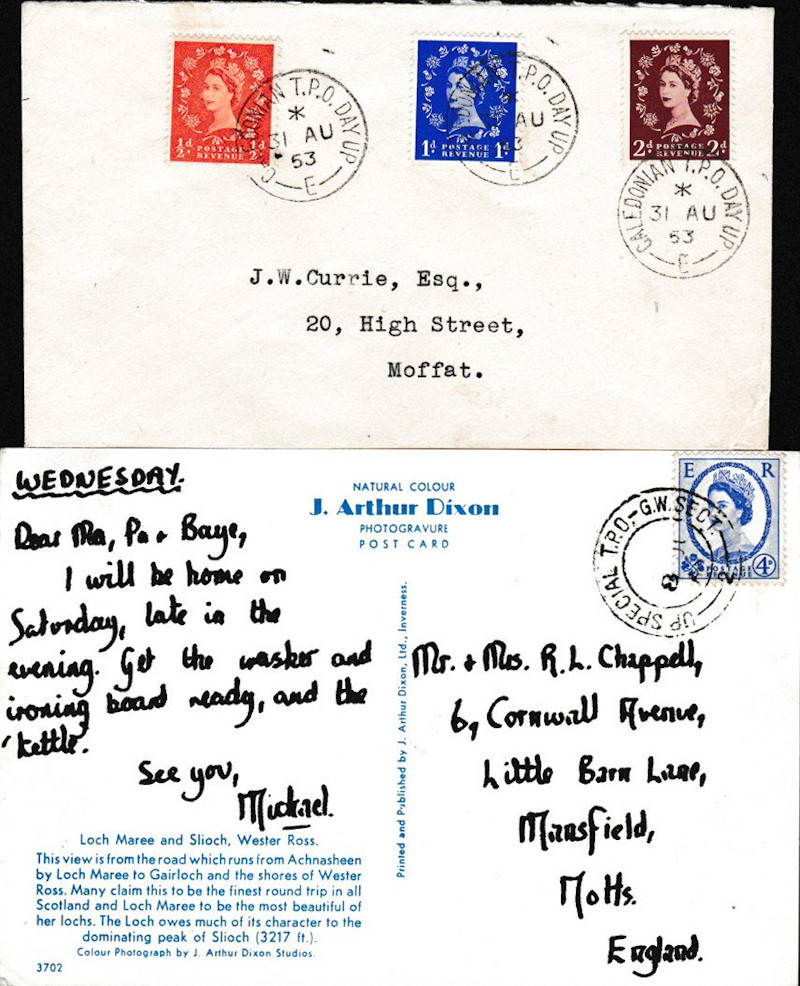 ½d POSTAGE REVENUE ½d
1d POSTAGE REVENUE 1d
2d POSTAGE REVENUE 2d
CALEDONIAN T.P.O. DAY UP
*
31 AU
53
E
DONIAN T.P.O. DAY UP
*
AU
53
E
CALEDONIAN T.P.O. DAY UP
*
31 AU
53
E
J.W.Currie, Esq.,
20, High Street,
Moffat.
WEDNESDAY.
Dear Ma, Pa + Baye,
I will be home on
Saturday, late in the
evening. Get the washer and
ironing board ready, and the
'kettle'.
See you,
Michael.
Loch Maree and Slioch, Wester Ross.
This view is from the road which runs from Achnasheen
by Loch Maree to Gairloch and the shores of Wester
Ross. Many claim this to be the finest round trip in all
Scotland and Loch Maree to be the most beautiful of
her lochs. The Loch owes much of its character to the
dominating peak of Slioch (3217 ft.).
Colour Photograph by J. Arthur Dixon Studios.
3702
NATURAL COLOUR
J. Arthur Dixon
PHOTOGRAVURE
POST CARD
Printed and Published by J. Arthur Dixon, Ltd., Inverness.
E R
POSTAGE
REVENUE
4d
UP SPECIAL T.P.O.-G.W.SECT.
Mr. + Mrs. R.L. Chappell,
6, Cornwall Avenue,
Little Barn Lane,
Mansfield,
Notts.
England.